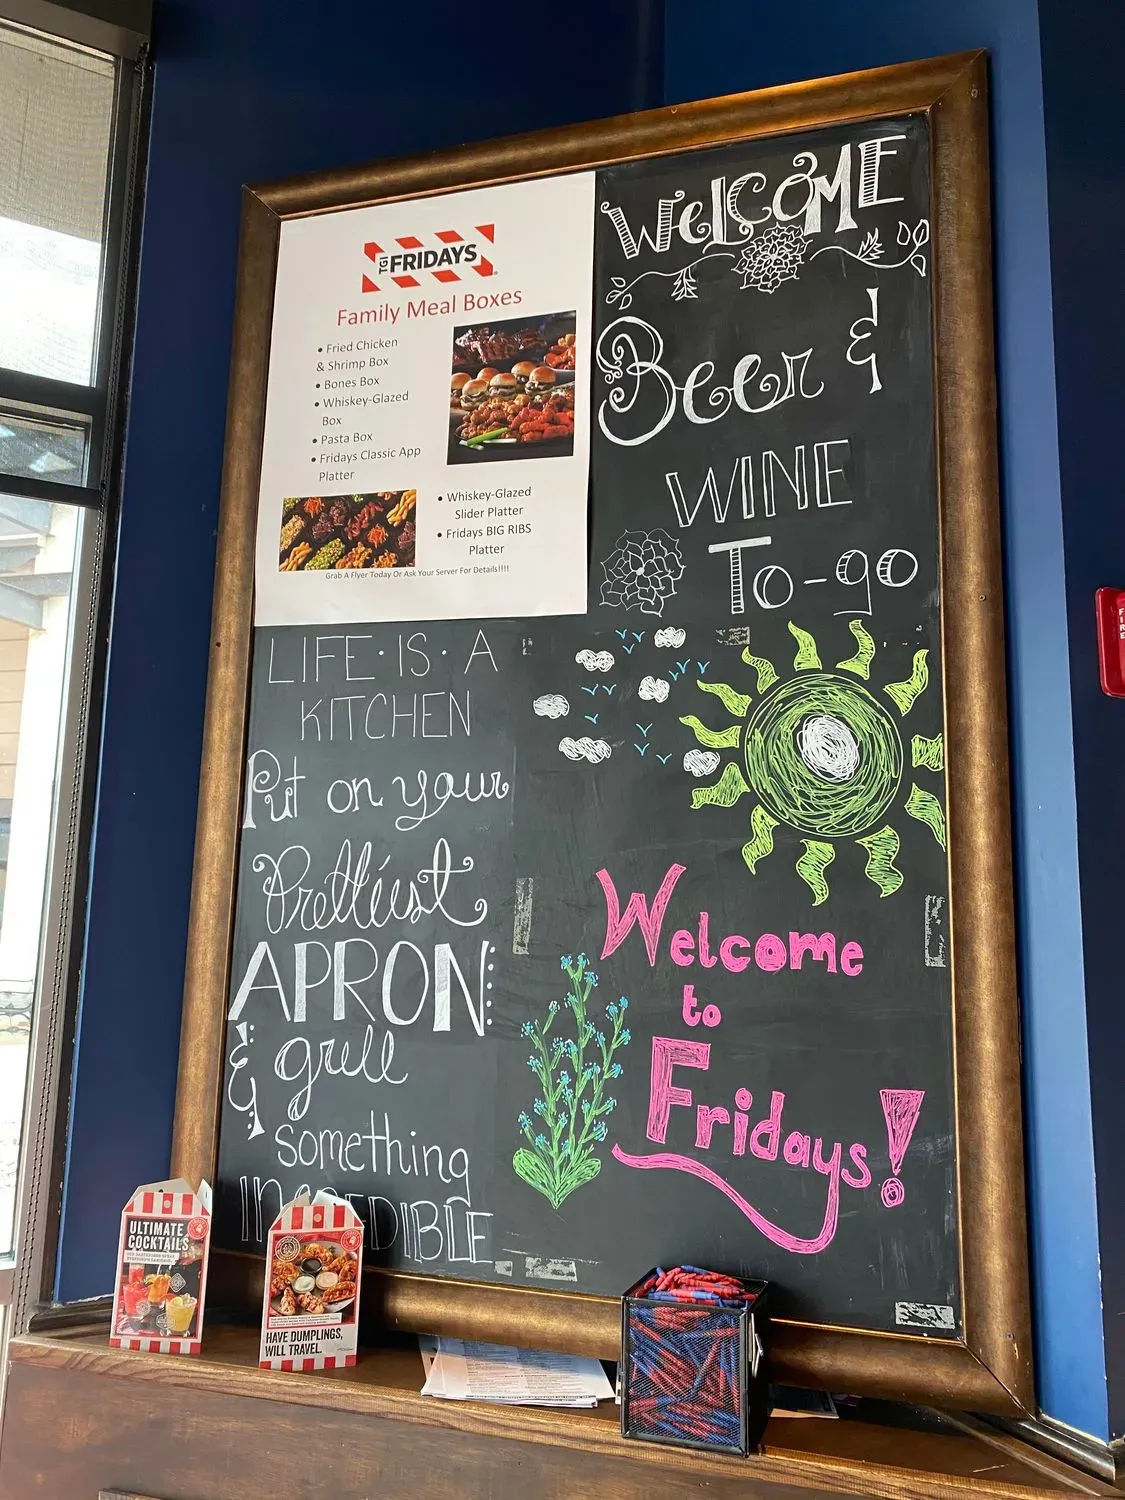 TGI FRIDAYS
Family Meal Boxes
• Fried Chicken
& Shrimp Box
• Bones Box
• Whiskey-Glazed
Box
• Pasta Box
• Fridays Classic App
Platter
• Whiskey-Glazed
Slider Platter
• Fridays BIG RIBS
Platter
Grab A Flyer Today Or Ask Your Server For Details!!!!
WELCOME
Beer &
WINE
To-go
LIFE · IS · A
KITCHEN
Put on your
Prettiest
APRON
& grill
something
INCREDIBLE
Welcome
to
Fridays!
ULTIMATE
COCKTAILS
HAVE DUMPLINGS,
WILL TRAVEL.
FIRE